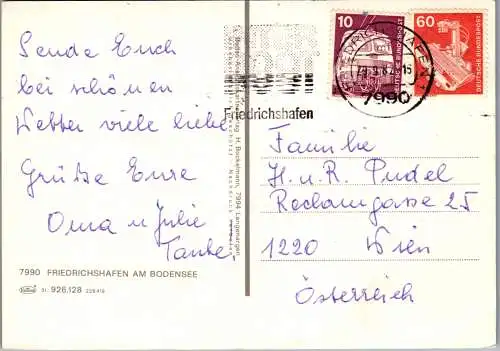 Sende Euch
bei schönen
Wetter viele liebe
Grüße Eure
Oma u Julie
Tante
7990 FRIEDRICHSHAFEN AM BODENSEE
31. 926.128
10
DEUTSCHE BUNDESPOST
60
DEUTSCHE BUNDESPOST
7990
Friedrichshafen
Familie
H. u. R. Pudel
Reclamgasse 25
1220 Wien
Österreich